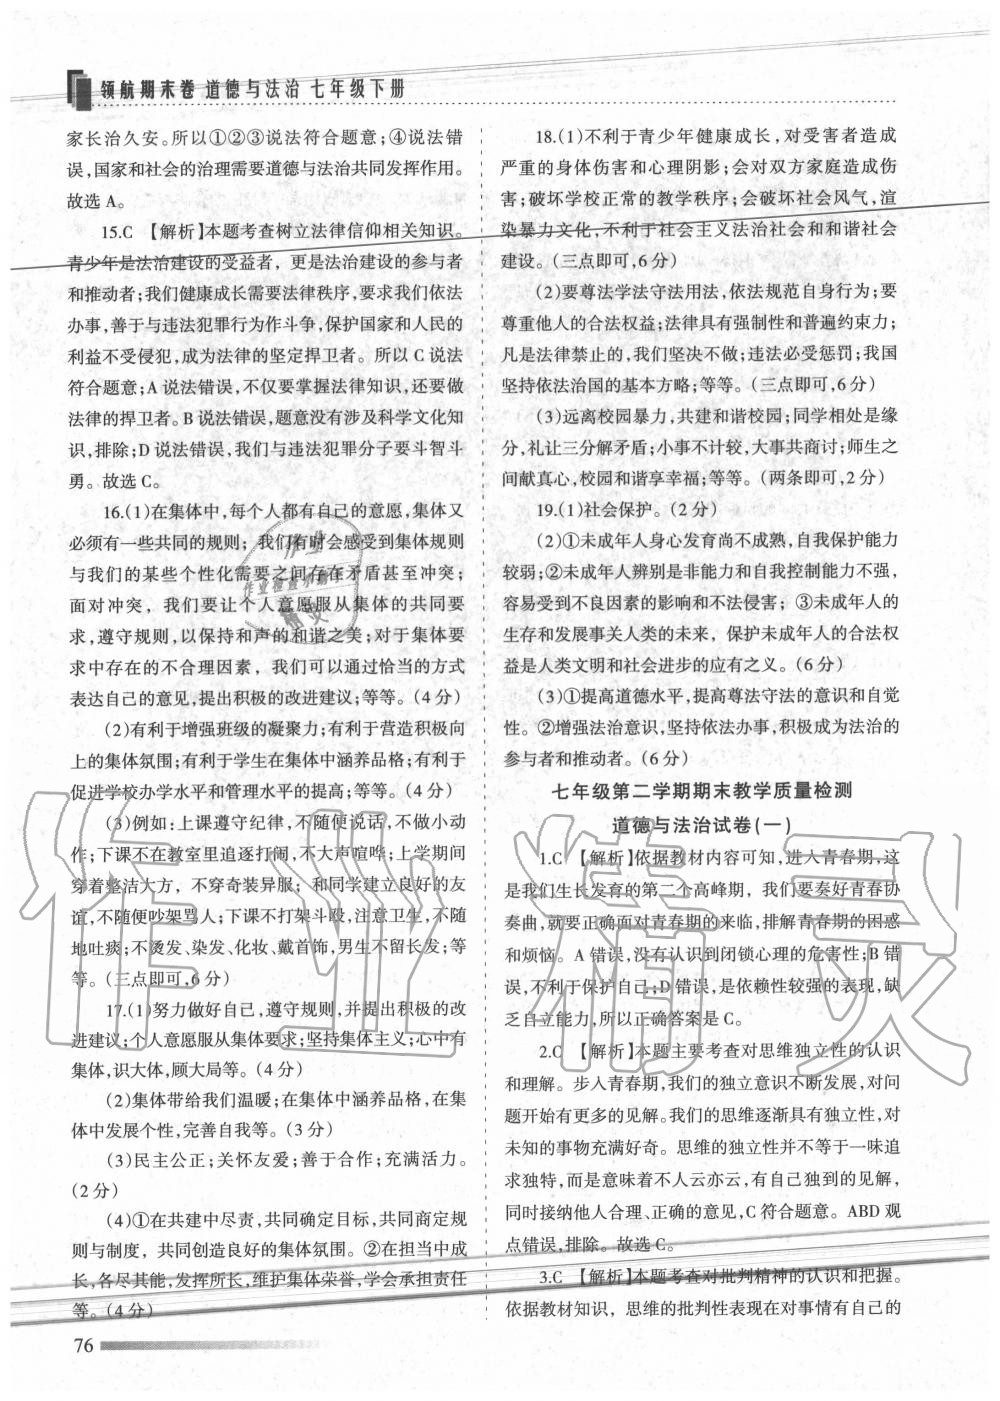 领航期末卷 道德与法治 七年级下册
家长治久安。所以①②③说法符合题意;④说法错
误,国家和社会的治理需要道德与法治共同发挥作用。
故选 A。
15.C 【解析】本题考查树立法律信仰相关知识。
青少年是法治建设的受益者，更是法治建设的参与者
和推动者;我们健康成长需要法律秩序,要求我们依法
办事,善于与违法犯罪行为作斗争,保护国家和人民的
利益不受侵犯,成为法律的坚定捍卫者。所以 C 说法
符合题意;A 说法错误,不仅要掌握法律知识,还要做
法律的捍卫者。B 说法错误,题意没有涉及科学文化知
识,排除;D 说法错误,我们与违法犯罪分子要斗智斗
勇。故选 C。
16.(1)在集体中,每个人都有自己的意愿,集体又
必须有一些共同的规则；我们有时会感受到集体规则
与我们的某些个性化需要之间存在矛盾甚至冲突；
面对冲突，我们要让个人意愿服从集体的共同要
求,遵守规则,以保持和声的和谐之美;对于集体要
求中存在的不合理因素，我们可以通过恰当的方式
表达自己的意见,提出积极的改进建议;等等。(4 分)
(2)有利于增强班级的凝聚力;有利于营造积极向
上的集体氛围;有利于学生在集体中涵养品格;有利于
促进学校办学水平和管理水平的提高;等等。(4 分)
(3)例如:上课遵守纪律,不随便说话,不做小动
作;下课不在教室里追逐打闹,不大声喧哗;上学期间
穿着整洁大方，不穿奇装异服;和同学建立良好的友
谊,不随便吵架骂人;下课不打架斗殴,注意卫生,不随
地吐痰;不烫发、染发、化妆、戴首饰,男生不留长发;等
等。(三点即可,6 分)
17.(1)努力做好自己,遵守规则,并提出积极的改
进建议;个人意愿服从集体要求;坚持集体主义;心中有
集体,识大体,顾大局等。(4 分)
(2)集体带给我们温暖;在集体中涵养品格,在集
体中发展个性,完善自我等。(3 分)
(3)民主公正;关怀友爱;善于合作;充满活力。
(2 分)
(4)①在共建中尽责,共同确定目标,共同商定规
则与制度，共同创造良好的集体氛围。②在担当中成
长,各尽其能,发挥所长,维护集体荣誉,学会承担责任
等。(4 分)
18.(1)不利于青少年健康成长，对受害者造成
严重的身体伤害和心理阴影;会对双方家庭造成伤
害;破坏学校正常的教学秩序;会破坏社会风气,渲
染暴力文化,不利于社会主义法治社会和和谐社会
建设。(三点即可,6 分)
(2)要尊法学法守法用法,依法规范自身行为;要
尊重他人的合法权益;法律具有强制性和普遍约束力;
凡是法律禁止的,我们坚决不做;违法必受惩罚;我国
坚持依法治国的基本方略;等等。(三点即可,6 分)
(3)远离校园暴力,共建和谐校园;同学相处是缘
分,礼让三分解矛盾;小事不计较,大事共商讨;师生之
间献真心,校园和谐享幸福;等等。(两条即可,2 分)
19.(1)社会保护。(2 分)
(2)①未成年人身心发育尚不成熟,自我保护能力
较弱;②未成年人辨别是非能力和自我控制能力不强,
容易受到不良因素的影响和不法侵害；③未成年人的
生存和发展事关人类的未来，保护未成年人的合法权
益是人类文明和社会进步的应有之义。(6 分)
(3)①提高道德水平,提高尊法守法的意识和自觉
性。②增强法治意识,坚持依法办事,积极成为法治的
参与者和推动者。(6 分)
七年级第二学期期末教学质量检测
道德与法治试卷(一)
1.C 【解析】依据教材内容可知,进入青春期,这
是我们生长发育的第二个高峰期，我们要奏好青春协
奏曲,就要正确面对青春期的来临,排解青春期的困惑
和烦恼。A 错误,没有认识到闭锁心理的危害性;B 错
误,不利于保护自己;D 错误,是依赖性较强的表现,缺
乏自立能力,所以正确答案是 C。
2.C 【解析】本题主要考查对思维独立性的认识
和理解。步入青春期,我们的独立意识不断发展,对问
题开始有更多的见解。我们的思维逐渐具有独立性,对
未知的事物充满好奇。思维的独立性并不等于一味追
求独特,而是意味着不人云亦云,有自己独到的见解,
同时接纳他人合理、正确的意见,C 符合题意。ABD 观
点错误,排除。故选 C。
3.C 【解析】本题考查对批判精神的认识和把握。
依据教材知识，思维的批判性表现在对事情有自己的
76
作业精灵